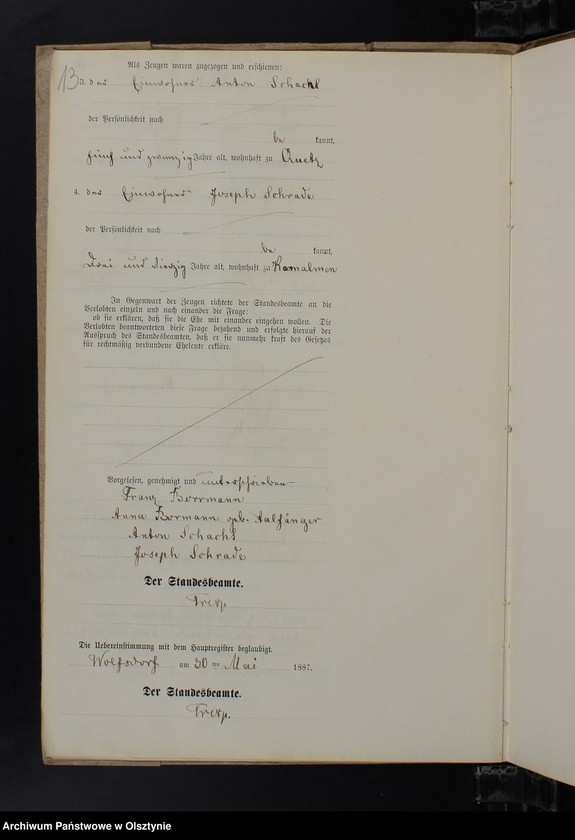 13
Als Zeugen waren zugezogen und erschienen:
3. der Einwohner Anton Schacht
der Persönlichkeit nach
be kannt,
fünf und zwanzig Jahre alt, wohnhaft zu Queetz
4. der Einwohner Joseph Schrade
der Persönlichkeit nach
be kannt,
drei und vierzig Jahre alt, wohnhaft zu Komalmen
In Gegenwart der Zeugen richtete der Standesbeamte an die
Verlobten einzeln und nach einander die Frage:
ob sie erklären, daß sie die Ehe mit einander eingehen wollen. Die
Verlobten beantworteten diese Frage bejahend und erfolgte hierauf der
Ausspruch des Standesbeamten, daß er sie nunmehr kraft des Gesetzes
für rechtmäßig verbundene Eheleute erkläre.
Vorgelesen, genehmigt und unterschrieben
Franz Borrmann
Anna Bormann geb. Aalfänger
Anton Schacht
Joseph Schrade
Der Standesbeamte.
Die Uebereinstimmung mit dem Hauptregister beglaubigt.
Wolfsdorf am 30 ten Mai 1887.
Der Standesbeamte.
Archiwum Państwowe w Olsztynie